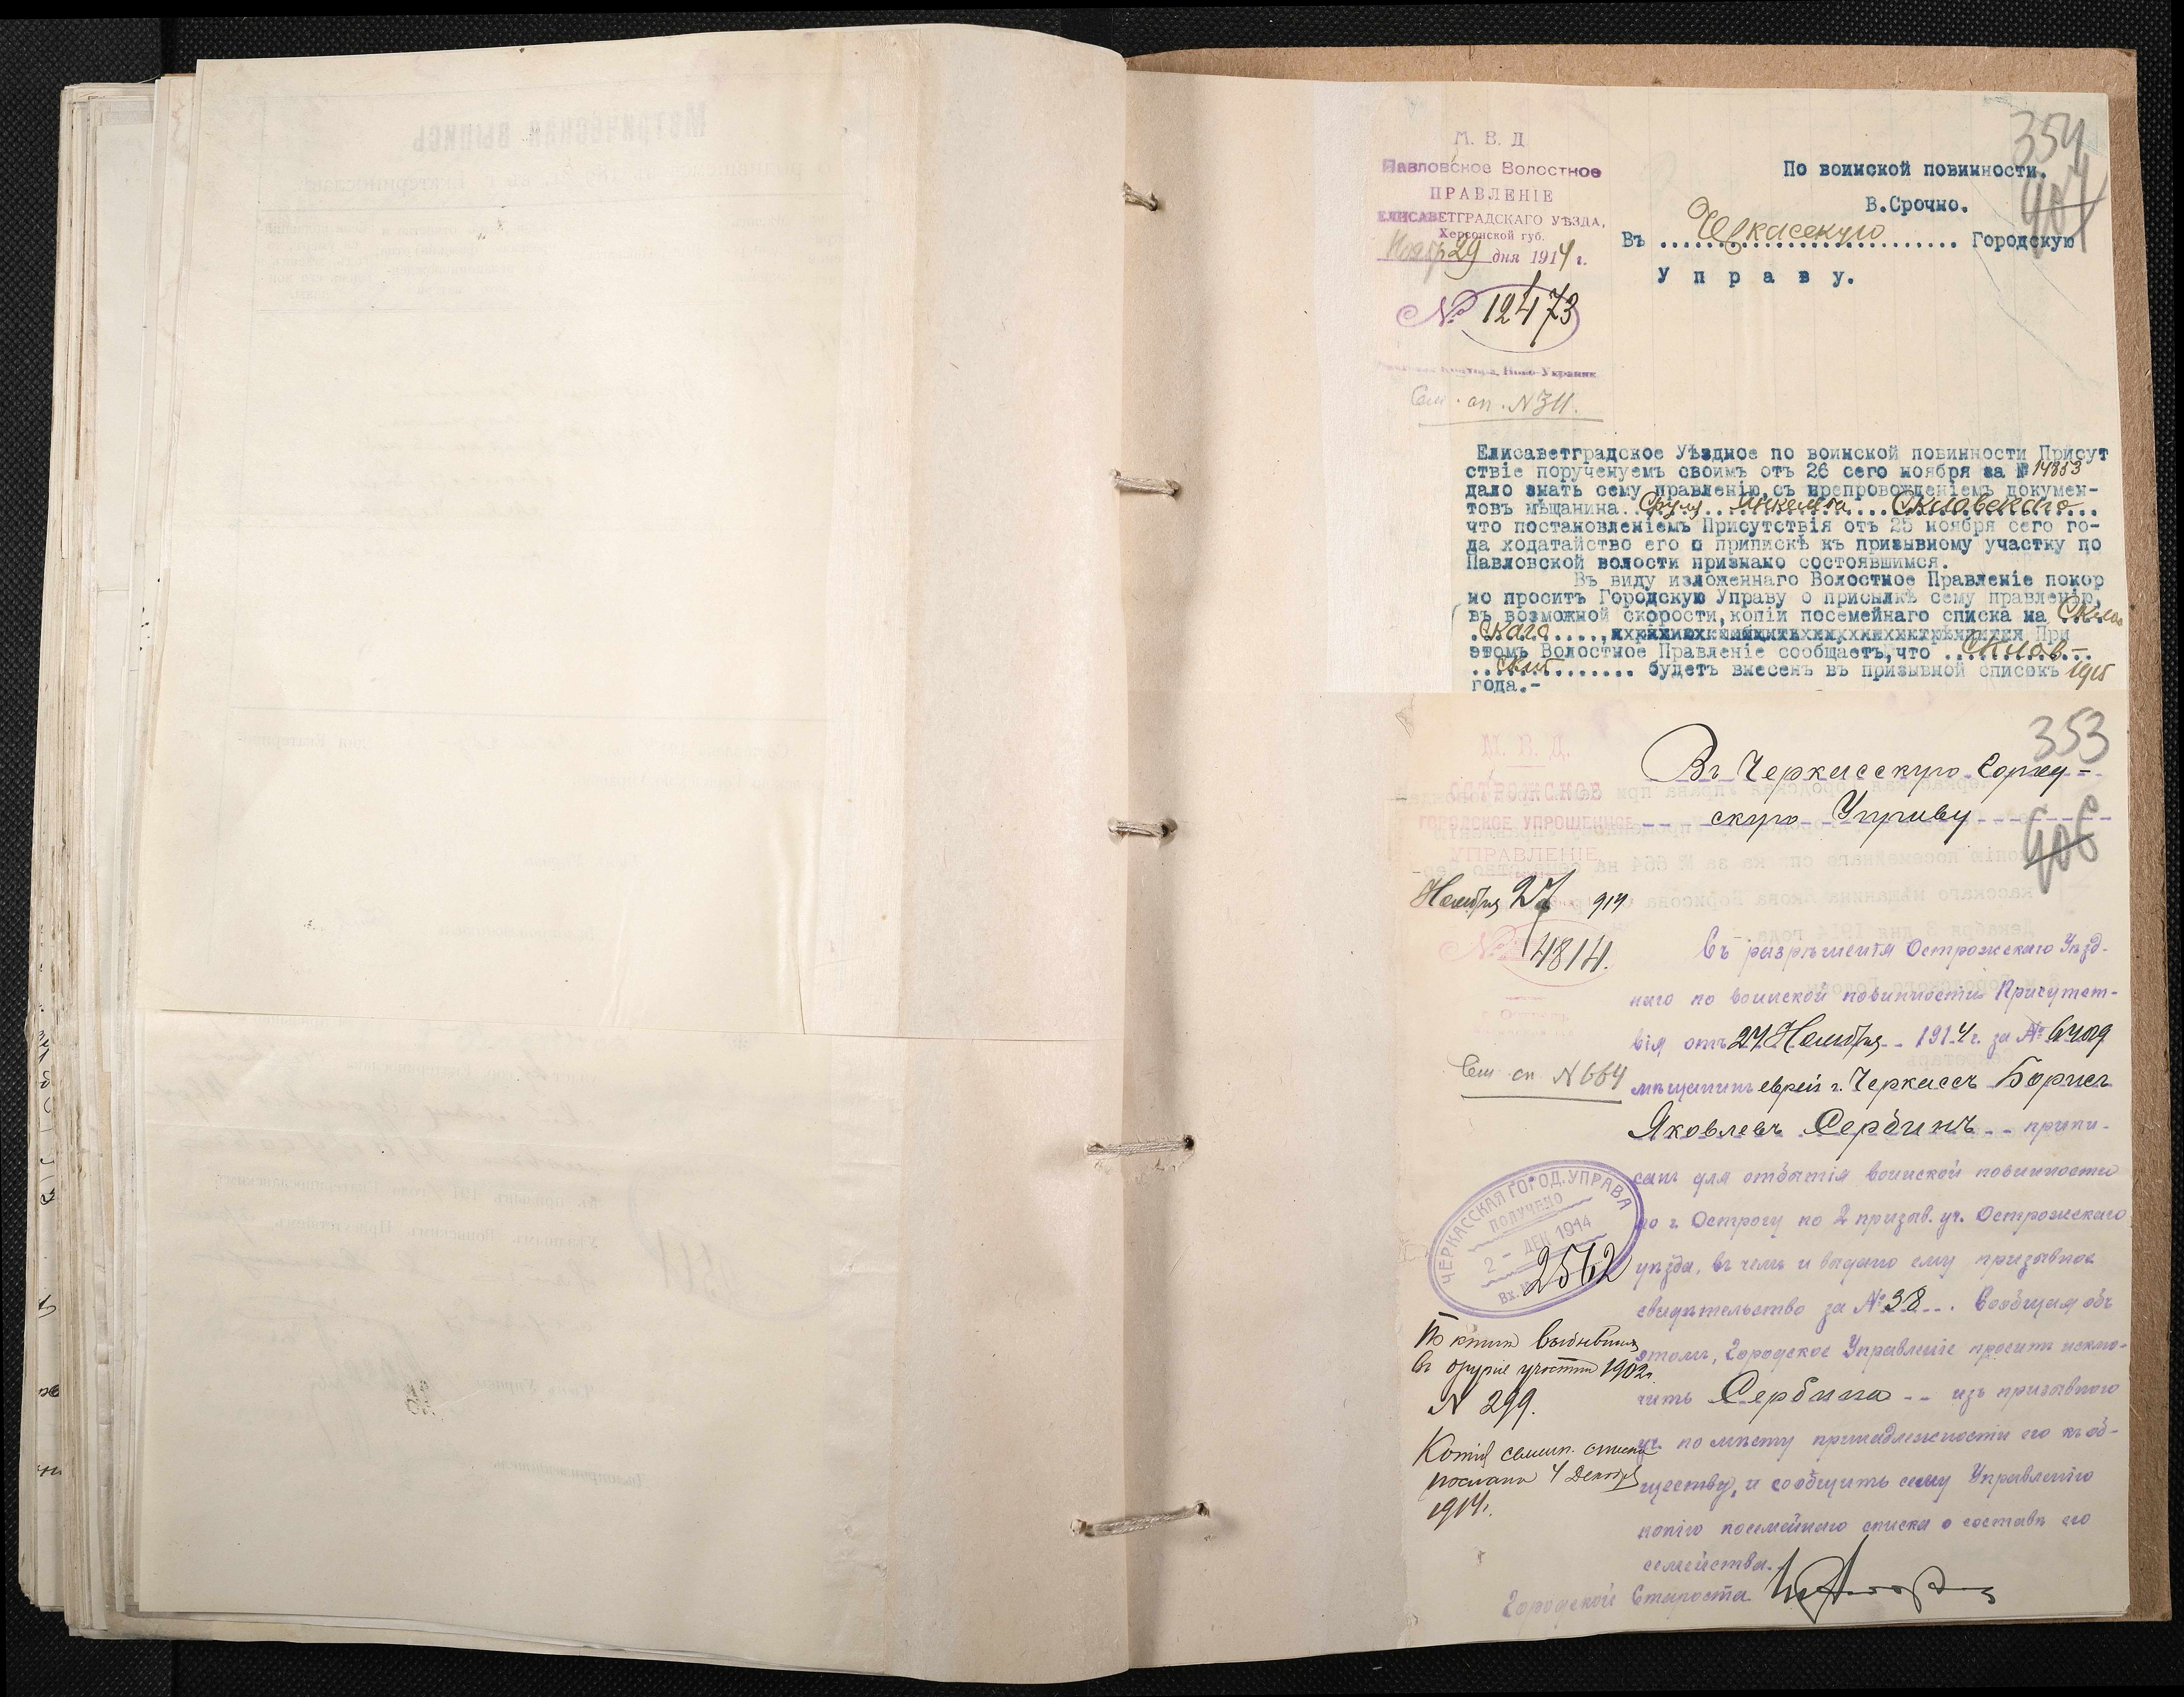 М. В. Д
Павловское Волостное
ПРАВЛЕНІЕ
ЕЛИСАВЕТГРАДСКАГО УѢЗДА,
Херсонской губ.
Ноябр 29 дня 1914 г.
№ 12473
Сем. сп. № 311.
354
По воинской повинности.
В.Срочно.
Въ Черкасскую Городскую
Управу.
Елисаветградское Уѣздное по воинской повинности Присут
ствіе порученуемъ своимъ отъ 26 сего ноября за № 14853
дало знать сему правленію, съ препровожденіемъ докумен-
товъ мѣщанина Сруля Янкелева Скловскаго
что постановленіемъ Присутствія отъ 25 ноября сего го-
да ходатайство его о припискѣ къ призывному участку по
Павловской волости признано состоявшимся.
Въ виду изложеннаго Волостное Правленіе покор
но проситъ Городскую Управу о присылкѣ сему правленію,
въ возможной скорости, копіи посемейнаго списка на Склов
скаго При
этомъ Волостное Правленіе сообщаетъ, что Склов-
скій будетъ внесенъ въ призывной списокъ 1915
года.-
353
406
М. В. Д.
ОСТРОЖСКОЕ
ГОРОДСКОЕ УПРОЩЕННОЕ
УПРАВЛЕНІЕ
Ноября 27 914
№ 4814.
Сем. сп. № 664
Въ Черкасскую Город-
скую Управу
Съ разрѣшенія Острожскаго Уѣзд-
наго по воинской повинности Присутст-
вія отъ 24 Ноября 1914 г. за № 6409
мѣщанинъ еврей г. Черкассъ Борисъ
Яковлевъ Сербинъ припи-
санъ для отбытія воинской повинности
по г. Острогу по 2 призыв. уч. Острожскаго
уѣзда, въ чемъ и выдано ему призывное
свидѣтельство за № 38. Сообщая объ
этомъ, Городское Управленіе проситъ исклю-
чить Сербина изъ призывного
уч. по мѣсту принадлежности его къ об-
ществу, и сообщить сему Управленію
копію посемейнаго списка о составѣ его
семейства.
Городской Староста
ЧЕРКАССКАЯ ГОРОД. УПРАВА
ПОЛУЧЕНО
2 - ДЕК 1914
Вх. № 2562
По книгѣ выбывшихъ
въ другіе участки 1902 г.
№ 299.
Копія семейн. списка
послана 4 Декабря
1914 г.